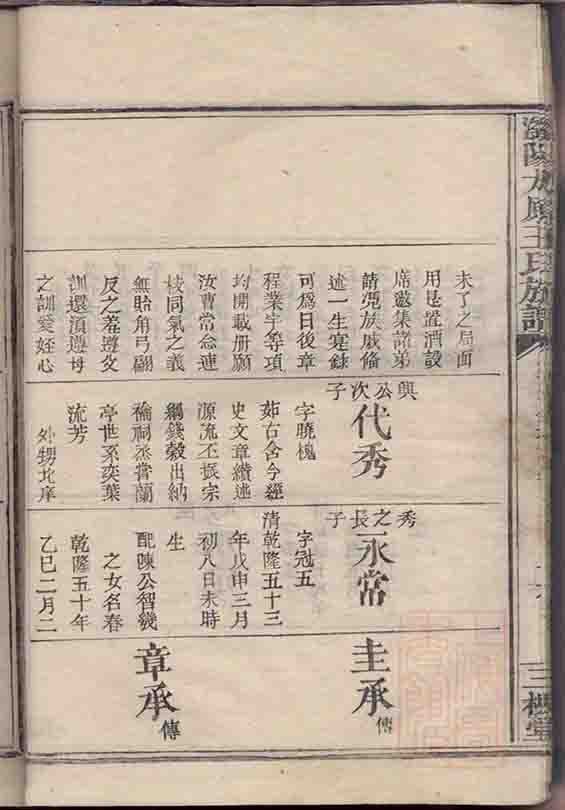 瀏陽太原王氏族譜
三槐堂
未了之局面
用是置酒設
席邀集諸弟
請憑族戚俻
述一生寔錄
可為日後章
程業宇等項
均開載册願
汝曹常念連
枝同氣之義
無貽角弓翩
反之羞遵父
訓還須遵母
之訓愛姪心
興公次子
代秀
字曉槐
茹古含今經
史文章纘述
源流丕振宗
綱錢穀出納
禴祠烝嘗蘭
亭世系奕葉
流芳
外甥北庠
秀之長子
永常
字冠五
清乾隆五十三
年戊申三月
初八日未時
生
配陳公智幾
之女名春
乾隆五十年
乙巳二月二
圭承傳
章承傳